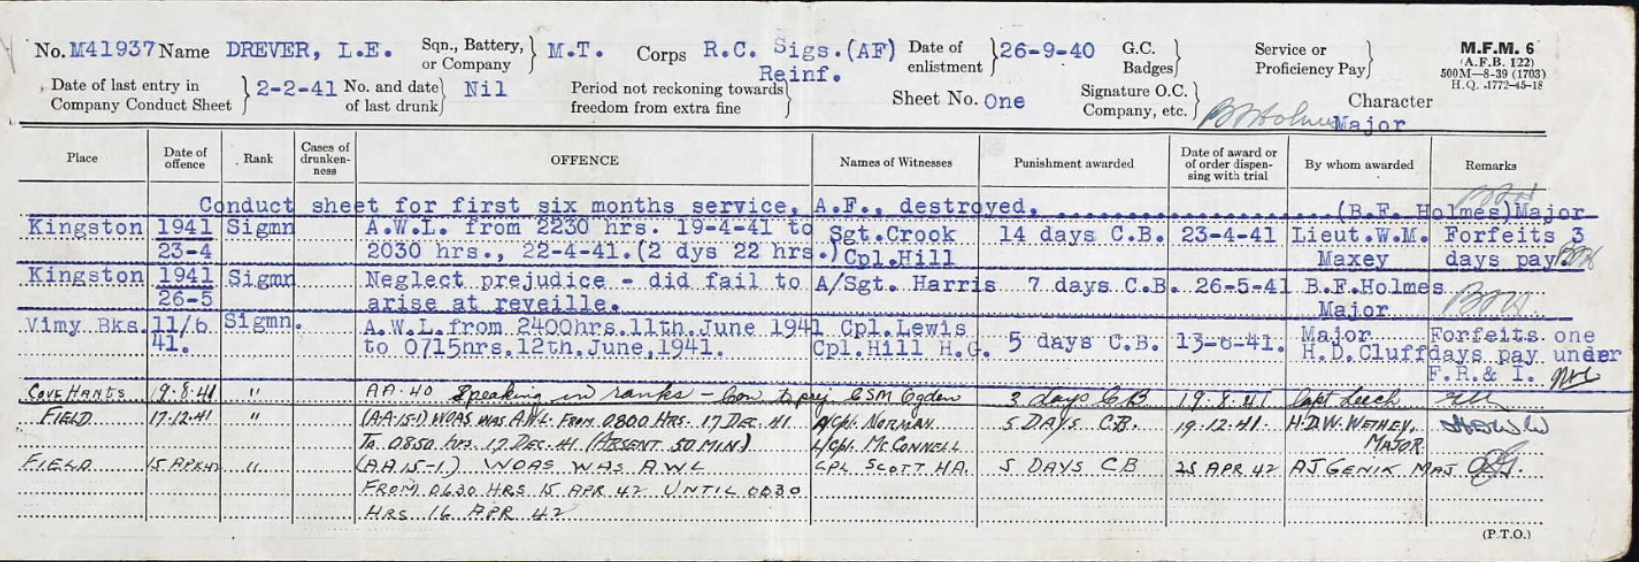 No. M41937 Name DREVER, L.E. Sqn., Battery, or Company } M.T. Corps R.C. Sigs.(AF) Reinf. Date of enlistment } 26-9-40 G.C. Badges } Service or Proficiency Pay } M.F.M. 6
(A.F.B. 122)
500M—8-39 (1703)
H.Q. 1772-45-18
Date of last entry in Company Conduct Sheet } 2-2-41 No. and date of last drunk } Nil Period not reckoning towards freedom from extra fine } Sheet No. One Signature O.C. Company, etc. } Major Character
Place Date of offence Rank Cases of drunken-ness OFFENCE Names of Witnesses Punishment awarded Date of award or of order dispen-sing with trial By whom awarded Remarks
Conduct sheet for first six months service, A.F., destroyed. (B.F. Holmes)Major
Kingston 1941 Sigmn A.W.L. from 2230 hrs. 19-4-41 to Sgt.Crook 14 days C.B. 23-4-41 Lieut.W.M. Forfeits 3
23-4 2030 hrs., 22-4-41.(2 dys 22 hrs.) Cpl.Hill Maxey days pay.
Kingston 1941 Sigmn Neglect prejudice - did fail to A/Sgt. Harris 7 days C.B. 26-5-41 B.F.Holmes
26-5 arise at reveille. Major
Vimy Bks. 11/6 Sigmn. A.W.L.from 2400hrs.11th.June 1941 Cpl.Lewis 5 days C.B. 13-6-41. Major Forfeits one
41. to 0715hrs.12th.June,1941. Cpl.Hill H.G. H.D.Cluff days pay under
F.R.& I.
COVE HANTS 19·8·41 " AA·40 Speaking in ranks - Con to prej CSM Ogden 3 days CB 19·8·41 Capt Leech
FIELD 17·12·41 " (AA·15·1) WOAS WAS A.W.L. FROM 0800 HRS. 17 DEC. 41 A/Cpl. NORMAN 5 DAYS C.B. 19·12·41. H.D.W. WETHEY.
TO 0850 hrs. 17 DEC. 41 (ABSENT 50 MIN.) L/Cpl. McCONNELL MAJOR
FIELD 15 APR 42 " (AA 15-1.) WOAS WAS A.W.L CPL SCOTT. H.A. 5 DAYS CB 25 APR 42 AJ GENIK MAJ
FROM 0630 HRS 15 APR 42 UNTIL 0030
HRS 16 APR 42
(P.T.O.)